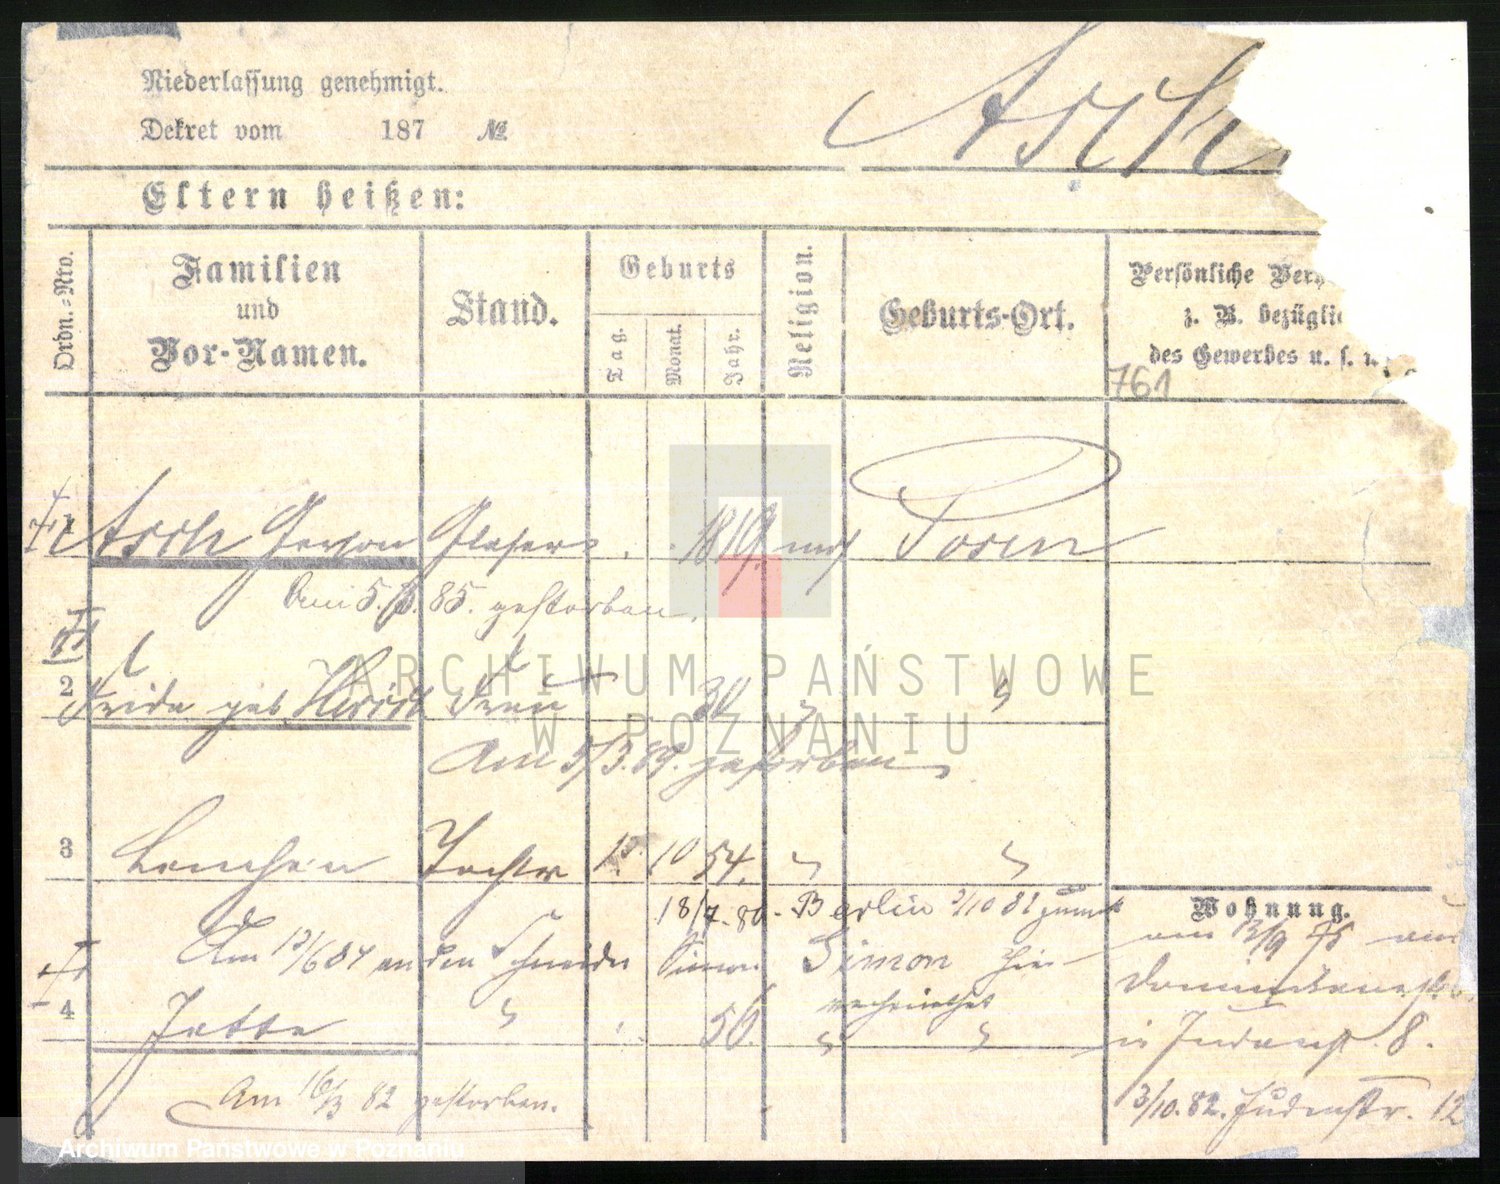 Niederlassung genehmigt.
Dekret vom 187 №
Asch
Eltern heißen:
Ordn.-Nro.
Familien und Vor-Namen.
Stand.
Geburts
Tag.
Monat.
Jahr.
Religion.
Geburts-Ort.
Persönliche
z. B.
des Gewerbes u. s.
761
1 Asch Gerson Glaser 1819 mos Posen
Am 5. 85. gestorben.
2 Frida geb Hirsch Frau 30 " "
Am 5/3.89. gestorben
3 Lenchen Tochter 15. 10 54. " "
18/7.80. Berlin 2/10 82 zurück
Am 12/6 84 an den Schneider Simon Simon hier
verheirathet
4 Jette " 56. " "
Am 16/3 82 gestorben.
Wohnung.
am 13/9 75
Dominikanerstr
in Judenstr. 8.
3/10.82. Judenstr. 12
ARCHIWUM PAŃSTWOWE
W POZNANIU
Archiwum Państwowe w Poznaniu